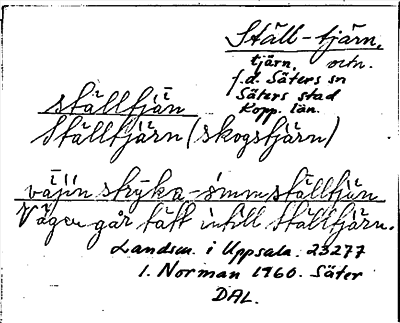 Ställ-tjärn,
tjärn, octn.
f.d. Säters sn
Säters stad
Kopp. län.
ställtjän
Ställtjärn (skogstjärn)
väjin stryka-simm ställtjän
Vägen går tätt intill Ställtjärn.
Landsm. i Uppsala. 23277
I. Norman 1960. Säter
DAL.